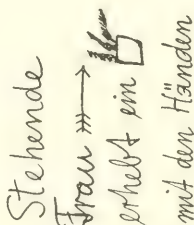 Stehende
Frau
erhebt ein
mit den Händen